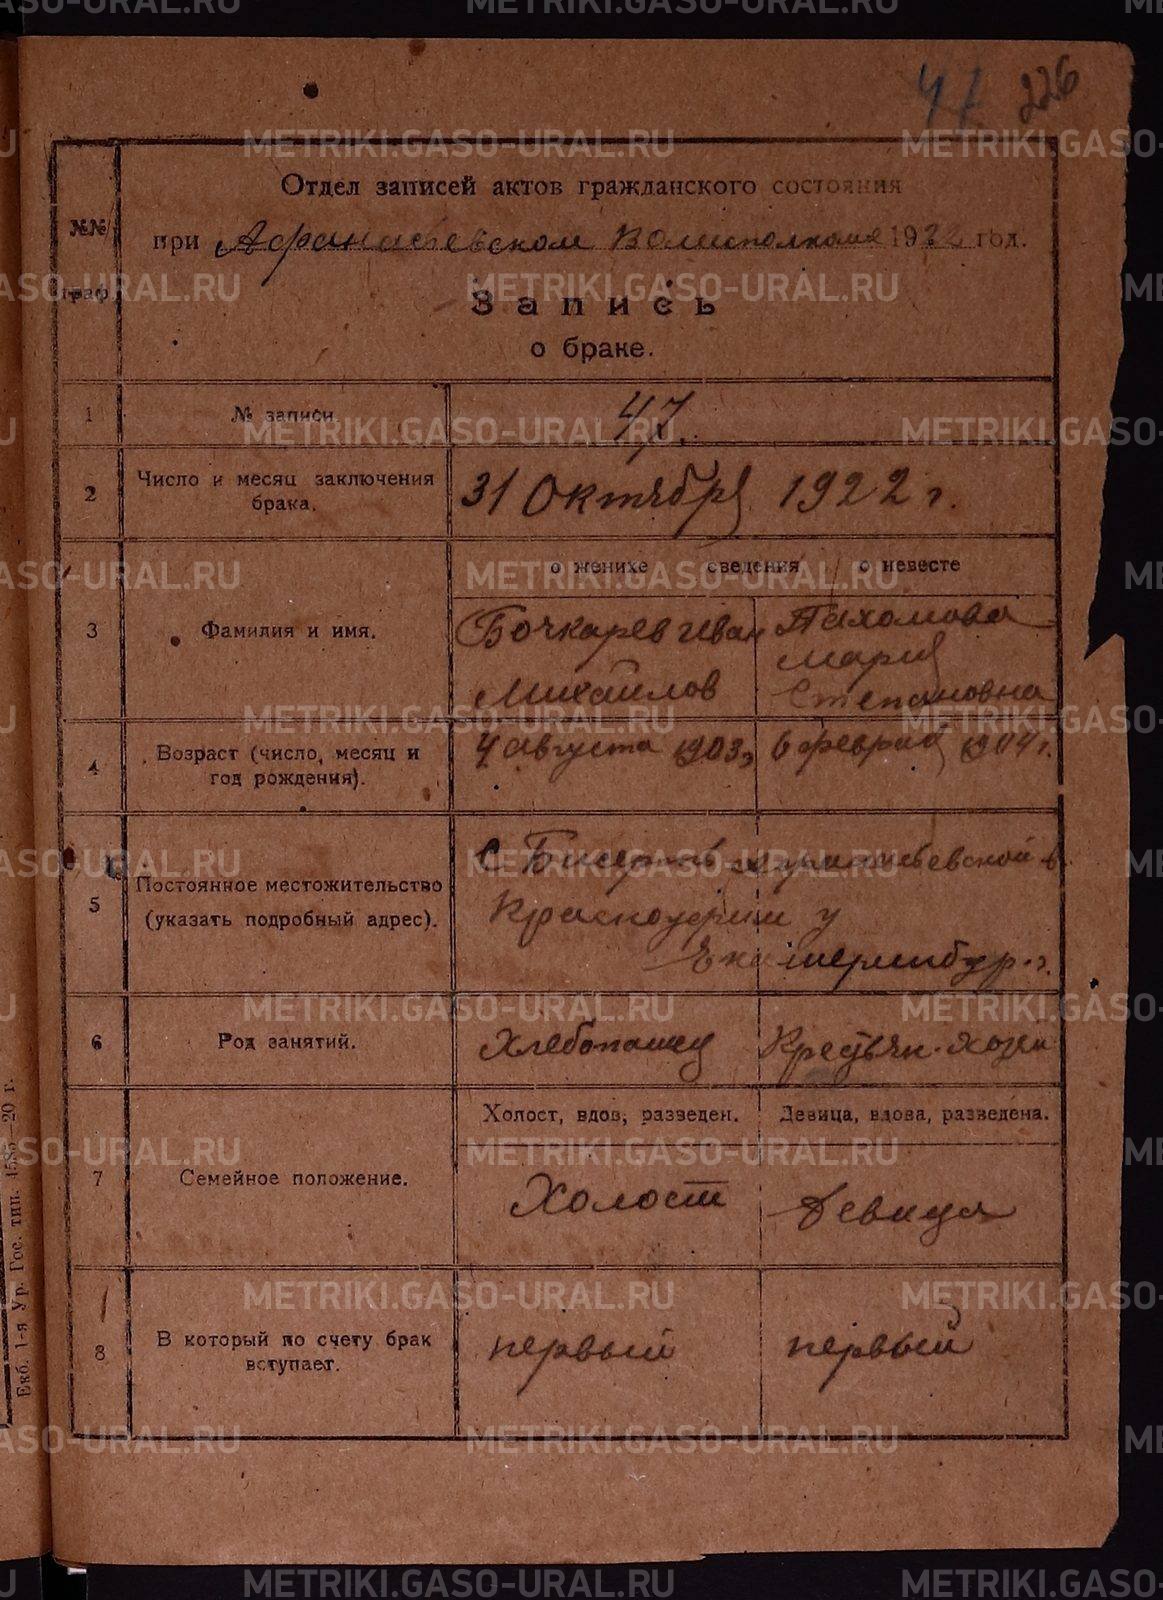 47 226
Отдел записей актов гражданского состояния
при Афанасьевском Волисполкоме 1922 год.
№№
граф
Запись
о браке.
1 № записи. 47.
2 Число и месяц заключения
брака.
31 Октября 1922 г.
о женихе сведения о невесте
3 Фамилия и имя.
Бочкарев Иван
Михайлов
Пахомова
Мария
Степановна
4 Возраст (число, месяц и
год рождения).
4 августа 1903 г. 6 февраля 1904 г.
5 Постоянное местожительство
(указать подробный адрес).
С Бисерть Афанасьевской в.
Красноуфим у
Екатеринбур. г.
6 Род занятий.
Хлебопашец Крестьян. хозяй
Холост, вдов, разведен. Девица, вдова, разведена.
7 Семейное положение.
Холост Девица
8 В который по счету брак
вступает.
первый первый
Екб. 1-я Ур. Гос. тип. 4585—20 г.
METRIKI.GASO-URAL.RU